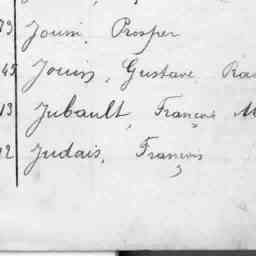 Jouin, Prosper
45 Jouin, Gustave
13 Jubault, François M
12 Judais, François